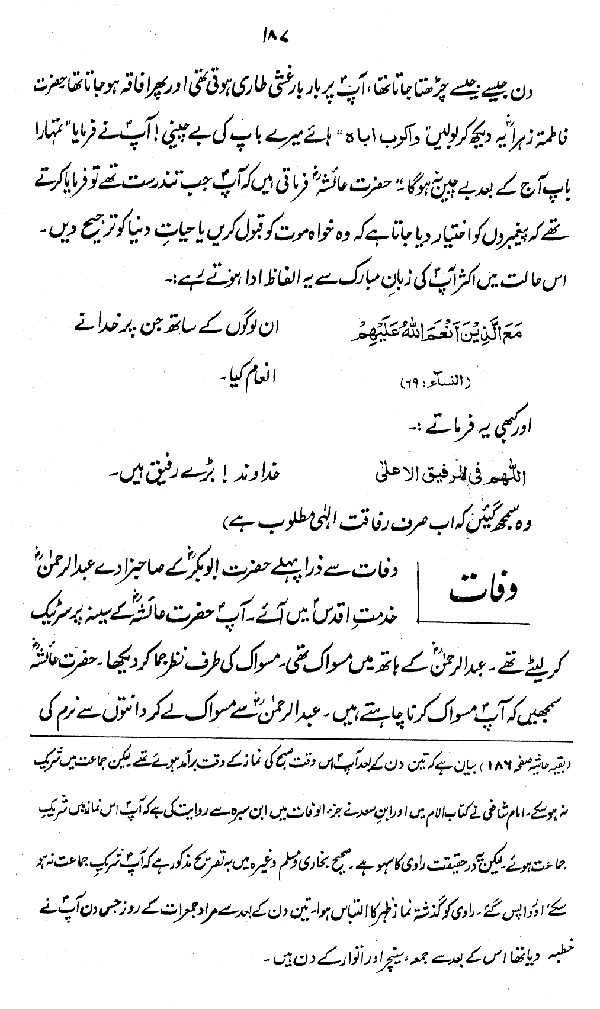 ۱۸۷
دن جیسے جیسے چڑھتا جاتا تھا، آپؐ پر بار بار غشی طاری ہوتی تھی اور پھر افاقہ ہو جاتا تھا حضرت
فاطمۃ زہراؓ یہ دیکھ کر بولیں واکرب اباہ" ہائے میرے باپ کی بے چینی! آپؐ نے فرمایا "تمہارا
باپ آج کے بعد بے چین نہ ہوگا۔" حضرت عائشہؓ فرماتی ہیں کہ آپؐ جب تندرست تھے تو فرمایا کرتے
تھے کہ پیغمبروں کو اختیار دیا جاتا ہے کہ وہ خواہ موت کو قبول کریں یا حیاتِ دنیا کو ترجیح دیں۔
اس حالت میں اکثر آپؐ کی زبانِ مبارک سے یہ الفاظ ادا ہوتے رہے:۔
مَعَ الَّذِیْنَ اَنْعَمَ اللّٰہُ عَلَیْہِمْ ان لوگوں کے ساتھ جن پر خدا نے
(النسآء: ۶۹) انعام کیا۔
اور کبھی یہ فرماتے:۔
اللہم فی الرفیق الاعلیٰ خداوند! بڑے رفیق ہیں۔
وہ سمجھ گئیں کہ اب صرف رفاقت الٰہی مطلوب ہے)
وفات
وفات سے ذرا پہلے حضرت ابوبکرؓ کے صاحبزادے عبدالرحمٰنؓ
خدمتِ اقدسؐ میں آئے۔ آپؐ حضرت عائشہؓ کے سینہ پر سر ٹیک
کر لیٹے تھے۔ عبدالرحمٰنؓ کے ہاتھ میں مسواک تھی۔ مسواک کی طرف نظر جما کر دیکھا۔ حضرت عائشہؓ
سمجھیں کہ آپؐ مسواک کرنا چاہتے ہیں۔ عبدالرحمٰنؓ سے مسواک لے کر دانتوں سے نرم کی
(بقیہ حاشیہ صفحہ ۱۸۶) بیان ہے کہ تین دن کے بعد آپؐ اس وقت صبح کی نماز کے وقت برآمد ہوئے تھے لیکن جماعت میں شریک
نہ ہو سکے۔ امام شافعی نے کتاب الام میں اور ابن سعد نے جزء الوفات میں ابن سبرہ سے روایت کی ہے کہ آپؐ اس نماز میں شریکِ
جماعت ہوئے۔ لیکن یہ درحقیقت راوی کا سہو ہے۔ صحیح بخاری و مسلم وغیرہ میں بہ تصریح مذکور ہے کہ آپؐ شریک جماعت نہ ہو
سکے اور واپس گئے۔ راوی کو گذشتہ نماز ظہر کا التباس ہوا۔ تین دن کے بعد سے مراد جمعرات کے روز جس دن آپؐ نے
خطبہ دیا تھا اس کے بعد سے جمعہ، سنیچر اور اتوار کے دن ہیں۔